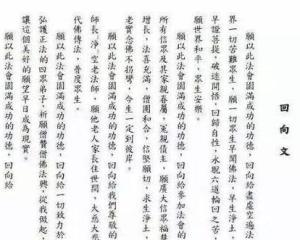 回向文
願以此法會圓滿成功的功德，回向給盡虛空遍法
界一切苦難眾生，願一切眾生早聞佛法，早生淨土，
早證菩提，破迷開悟，回歸自性，永脫六道輪回之苦，
願世界和平，眾生安樂。
願以此法會圓滿成功的功德，回向給參加法會的
所有信眾及其家親眷屬，冤親債主，願廣大信眾福慧
增長，法喜充滿，僧團和合，信堅願切，求生淨土，
老實念佛不拐彎，今生一定到彼岸。
願以此法會圓滿成功的功德，回向給我們尊敬的
師長，淨空老法師，願他老人家長住世間，大慈大悲
代佛傳法，普度眾生。
願以此法會圓滿成功的功德，回向給一切致力於
弘護正法的四眾弟子，祈願僧贊僧佛法興，從我做起，
讓這個美好的願望早日成為現實。
願以此法會圓滿成功的功德，回向給